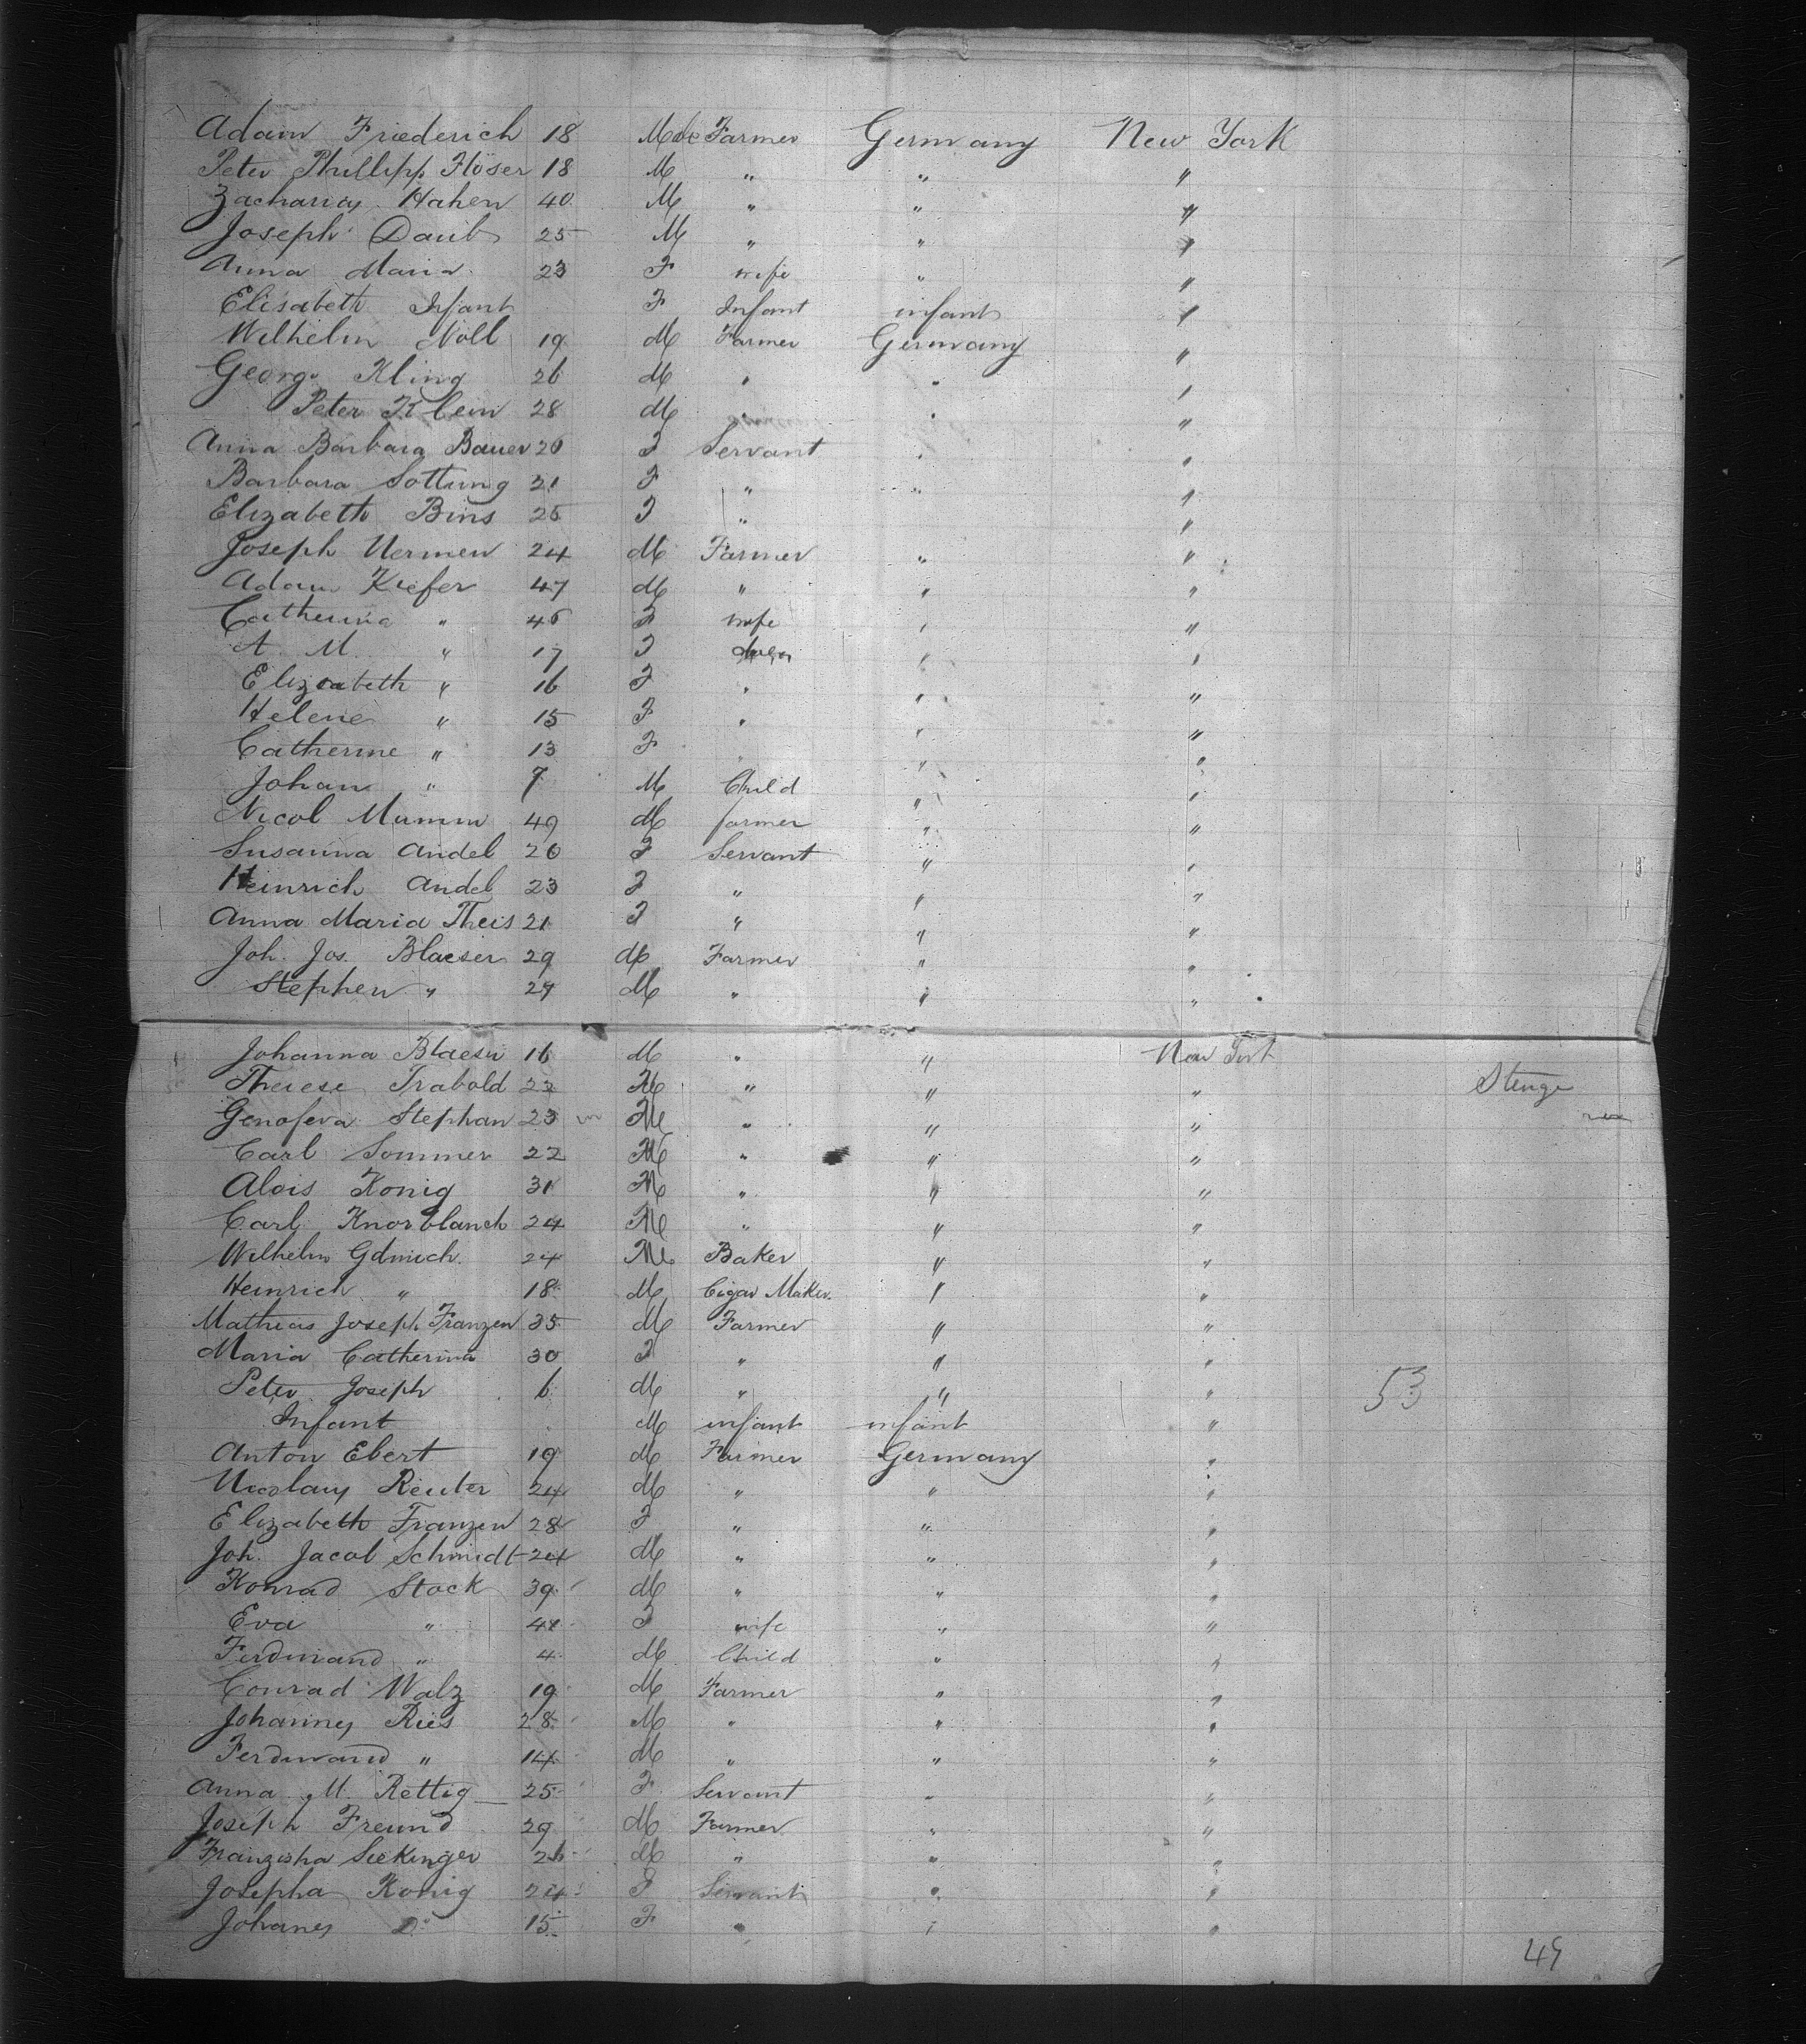 Adam Friederich 18 Male Farmer Germany New York
Peter Phillipp Flöser 18 M " " "
Zacharias Hahen 40 M " " "
Joseph Daub 25 M " " "
Anna Maria 23 F wife " "
Elisabeth Infant F Infant infant "
Wilhelm Noll 19 M Farmer Germany "
George Kling 26 M " " "
Peter Klein 28 M " " "
Anna Barbara Bauer 20 F Servant " "
Barbara Sottung 21 F " " "
Elizabeth Bins 25 F " " "
Joseph Uermen 24 M Farmer " "
Adam Kiefer 47 M " " "
Catherina " 46 F wife " "
A. M. " 17 F " "
Elizabeth " 16 F " " "
Helene " 15 F " " "
Catherine " 13 F " " "
Johan " 7 M Child " "
Nicol Mumm 49 M farmer " "
Susanna Andel 20 F Servant " "
Heinrich Andel 23 F " " "
Anna Maria Theis 21 F " " "
Joh. Jos. Blaeser 29 M Farmer " "
Stephen " 27 M " " "
Johanna Blaeser 16 M " " New York
Therese Trabold 22 M " " " Stenge
Genofeva Stephan 23 M " " "
Carl Sommer 22 M " " "
Alois Konig 31 M " " "
Carl Knorblanch 24 M " " "
Wilhelm Gdmich 24 M Baker " "
Heinrich " 18 M Cigar Maker " "
Mathias Joseph Franzen 35 M Farmer " "
Maria Catherina 30 F " " "
Peter Joseph 6 M " " " 53
Infant M infant infant "
Anton Ebert 19 M Farmer Germany "
Nicolaus Reuter 24 M " " "
Elizabeth Franzen 28 F " " "
Joh. Jacob Schmidt 24 M " " "
Konrad Stock 39 M " " "
Eva " 41 F wife " "
Ferdinand " 4 M Child " "
Conrad Walz 19 M Farmer " "
Johannes Ries 28 M " " "
Ferdinand " 14 M " " "
Anna M. Rettig 25 F Servant " "
Joseph Freund 29 M Farmer " "
Franziska Seekinger 26 M " " "
Josepha Konig 24 F Servant " "
Johanes Do 15 F " " "
49